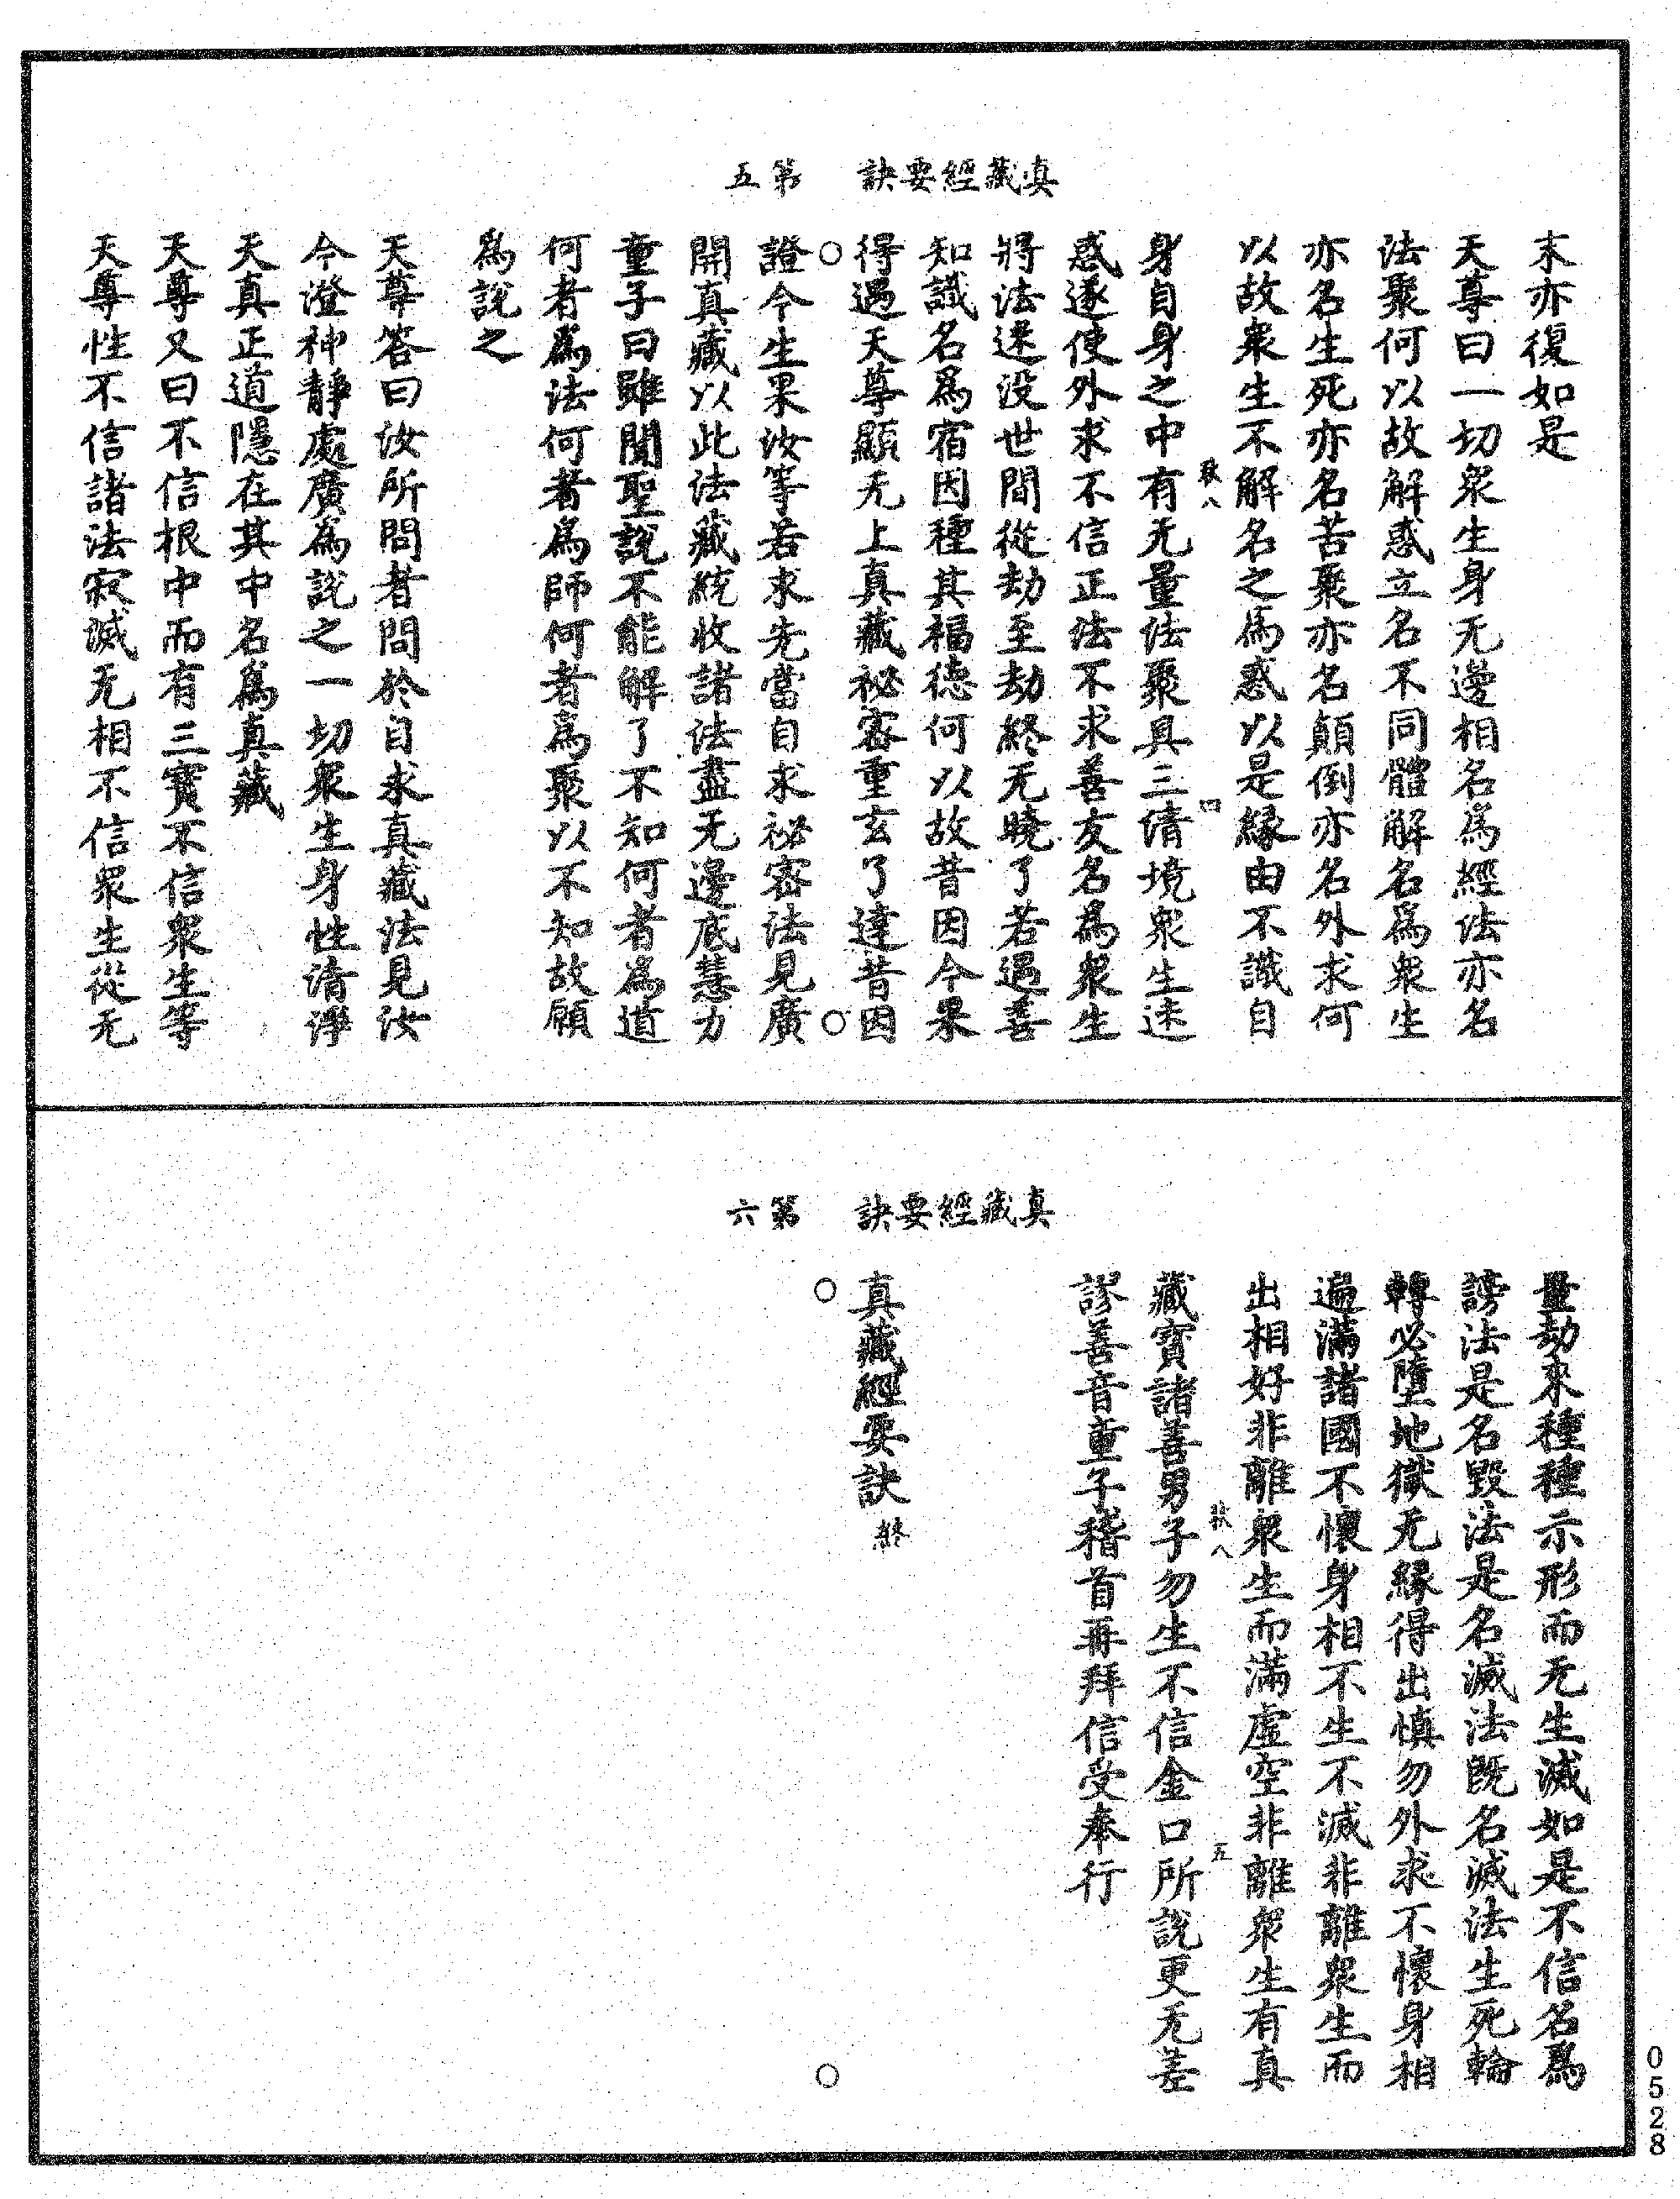 真藏經要訣　第五
末亦復如是
天尊曰一切眾生身无邊相名爲經法亦名
法聚何以故解惑立名不同體解名爲眾生
亦名生死亦名苦聚亦名顛倒亦名外求何
以故眾生不解名之爲惑以是緣由不識自
身自身之中有无量法聚具三清境眾生迷
惑遂使外求不信正法不求善友名爲眾生
將法迷没世間從劫至劫終无曉了若遇善
知識名爲宿因種其福德何以故昔因今果
得遇天尊顯无上真藏祕密重玄了達昔因
證今生果汝等若求先當自求祕密法見廣
開真藏以此法藏統收諸法盡无邊底慧力
童子曰雖聞聖說不能解了不知何者爲道
何者爲法何者爲師何者爲聚以不知故願
爲說之
天尊答曰汝所問者問於自求真藏法見汝
今澄神靜處廣爲說之一切眾生身性清淨
天真正道隱在其中名爲真藏
天尊又曰不信根中而有三寶不信眾生等
天尊性不信諸法寂滅无相不信眾生從无
真藏經要訣　第六
量劫來種種示形而无生滅如是不信名爲
謗法是名毀法是名滅法既名滅法生死輪
轉必墮地獄无緣得出慎勿外求不懷身相
遍滿諸國不懷身相不生不滅非離眾生而
出相好非離眾生而滿虛空非離眾生有真
藏寶諸善男子勿生不信金口所說更无差
謬善音童子稽首再拜信受奉行
真藏經要訣終
0528